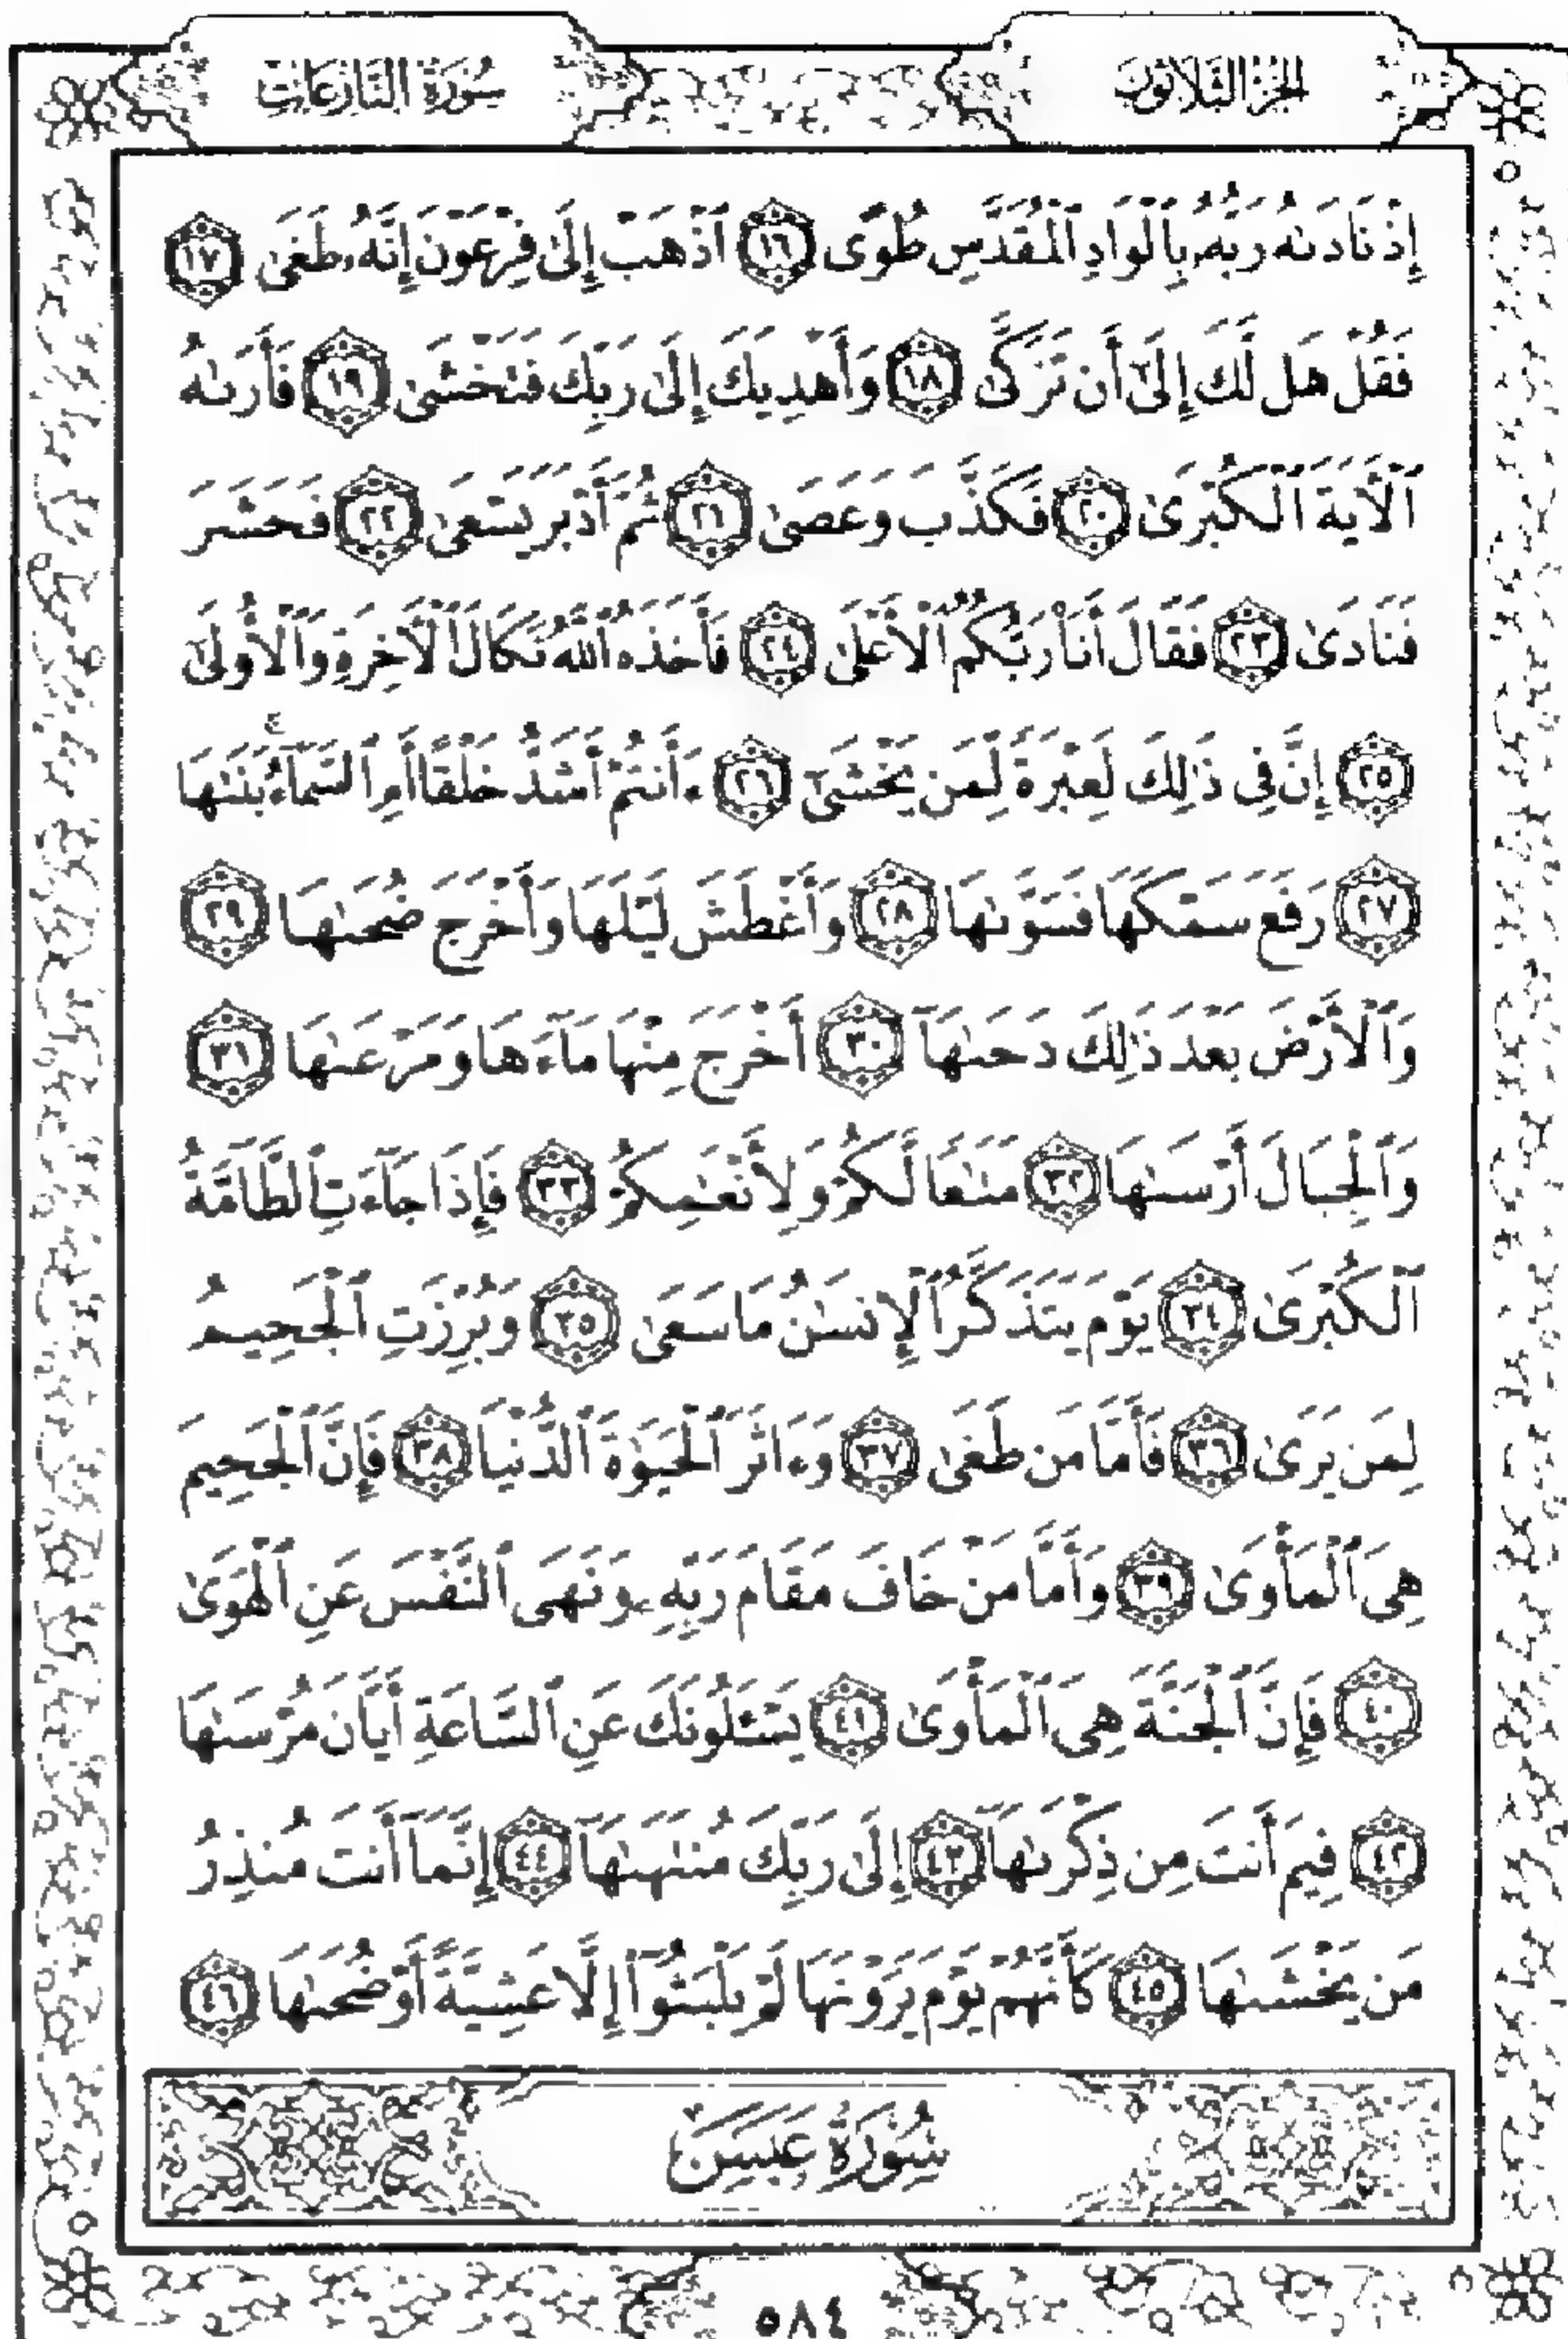 الجزء الثلاثون
سورة النازعات
إِذْ نَادَىٰهُ رَبُّهُۥ بِٱلْوَادِ ٱلْمُقَدَّسِ طُوًى ١٦ ٱذْهَبْ إِلَىٰ فِرْعَوْنَ إِنَّهُۥ طَغَىٰ ١٧
فَقُلْ هَل لَّكَ إِلَىٰٓ أَن تَزَكَّىٰ ١٨ وَأَهْدِيَكَ إِلَىٰ رَبِّكَ فَتَخْشَىٰ ١٩ فَأَرَىٰهُ
ٱلْأَيَةَ ٱلْكُبْرَىٰ ٢٠ فَكَذَّبَ وَعَصَىٰ ٢١ ثُمَّ أَدْبَرَ يَسْعَىٰ ٢٢ فَحَشَرَ
فَنَادَىٰ ٢٣ فَقَالَ أَنَا۠ رَبُّكُمُ ٱلْأَعْلَىٰ ٢٤ فَأَخَذَهُ ٱللَّهُ نَكَالَ ٱلْأَخِرَةِ وَٱلْأُولَىٰٓ
٢٥ إِنَّ فِى ذَٰلِكَ لَعِبْرَةً لِّمَن يَخْشَىٰٓ ٢٦ ءَأَنتُمْ أَشَدُّ خَلْقًا أَمِ ٱلسَّمَآءُ ۚ بَنَىٰهَا
٢٧ رَفَعَ سَمْكَهَا فَسَوَّىٰهَا ٢٨ وَأَغْطَشَ لَيْلَهَا وَأَخْرَجَ ضُحَىٰهَا ٢٩
وَٱلْأَرْضَ بَعْدَ ذَٰلِكَ دَحَىٰهَآ ٣٠ أَخْرَجَ مِنْهَا مَآءَهَا وَمَرْعَىٰهَا ٣١
وَٱلْجِبَالَ أَرْسَىٰهَا ٣٢ مَتَـٰعًا لَّكُمْ وَلِأَنْعَـٰمِكُمْ ٣٣ فَإِذَا جَآءَتِ ٱلطَّآمَّةُ
ٱلْكُبْرَىٰ ٣٤ يَوْمَ يَتَذَكَّرُ ٱلْإِنسَـٰنُ مَا سَعَىٰ ٣٥ وَبُرِّزَتِ ٱلْجَحِيمُ
لِمَن يَرَىٰ ٣٦ فَأَمَّا مَن طَغَىٰ ٣٧ وَءَاثَرَ ٱلْحَيَوٰةَ ٱلدُّنْيَا ٣٨ فَإِنَّ ٱلْجَحِيمَ
هِىَ ٱلْمَأْوَىٰ ٣٩ وَأَمَّا مَنْ خَافَ مَقَامَ رَبِّهِۦ وَنَهَى ٱلنَّفْسَ عَنِ ٱلْهَوَىٰ
٤٠ فَإِنَّ ٱلْجَنَّةَ هِىَ ٱلْمَأْوَىٰ ٤١ يَسْـَٔلُونَكَ عَنِ ٱلسَّاعَةِ أَيَّانَ مُرْسَىٰهَا
٤٢ فِيمَ أَنتَ مِن ذِكْرَىٰهَآ ٤٣ إِلَىٰ رَبِّكَ مُنتَهَىٰهَآ ٤٤ إِنَّمَآ أَنتَ مُنذِرُ
مَن يَخْشَىٰهَا ٤٥ كَأَنَّهُمْ يَوْمَ يَرَوْنَهَا لَمْ يَلْبَثُوٓا۟ إِلَّا عَشِيَّةً أَوْ ضُحَىٰهَا ٤٦
سُورَةُ عَبَسَ
٥٨٤